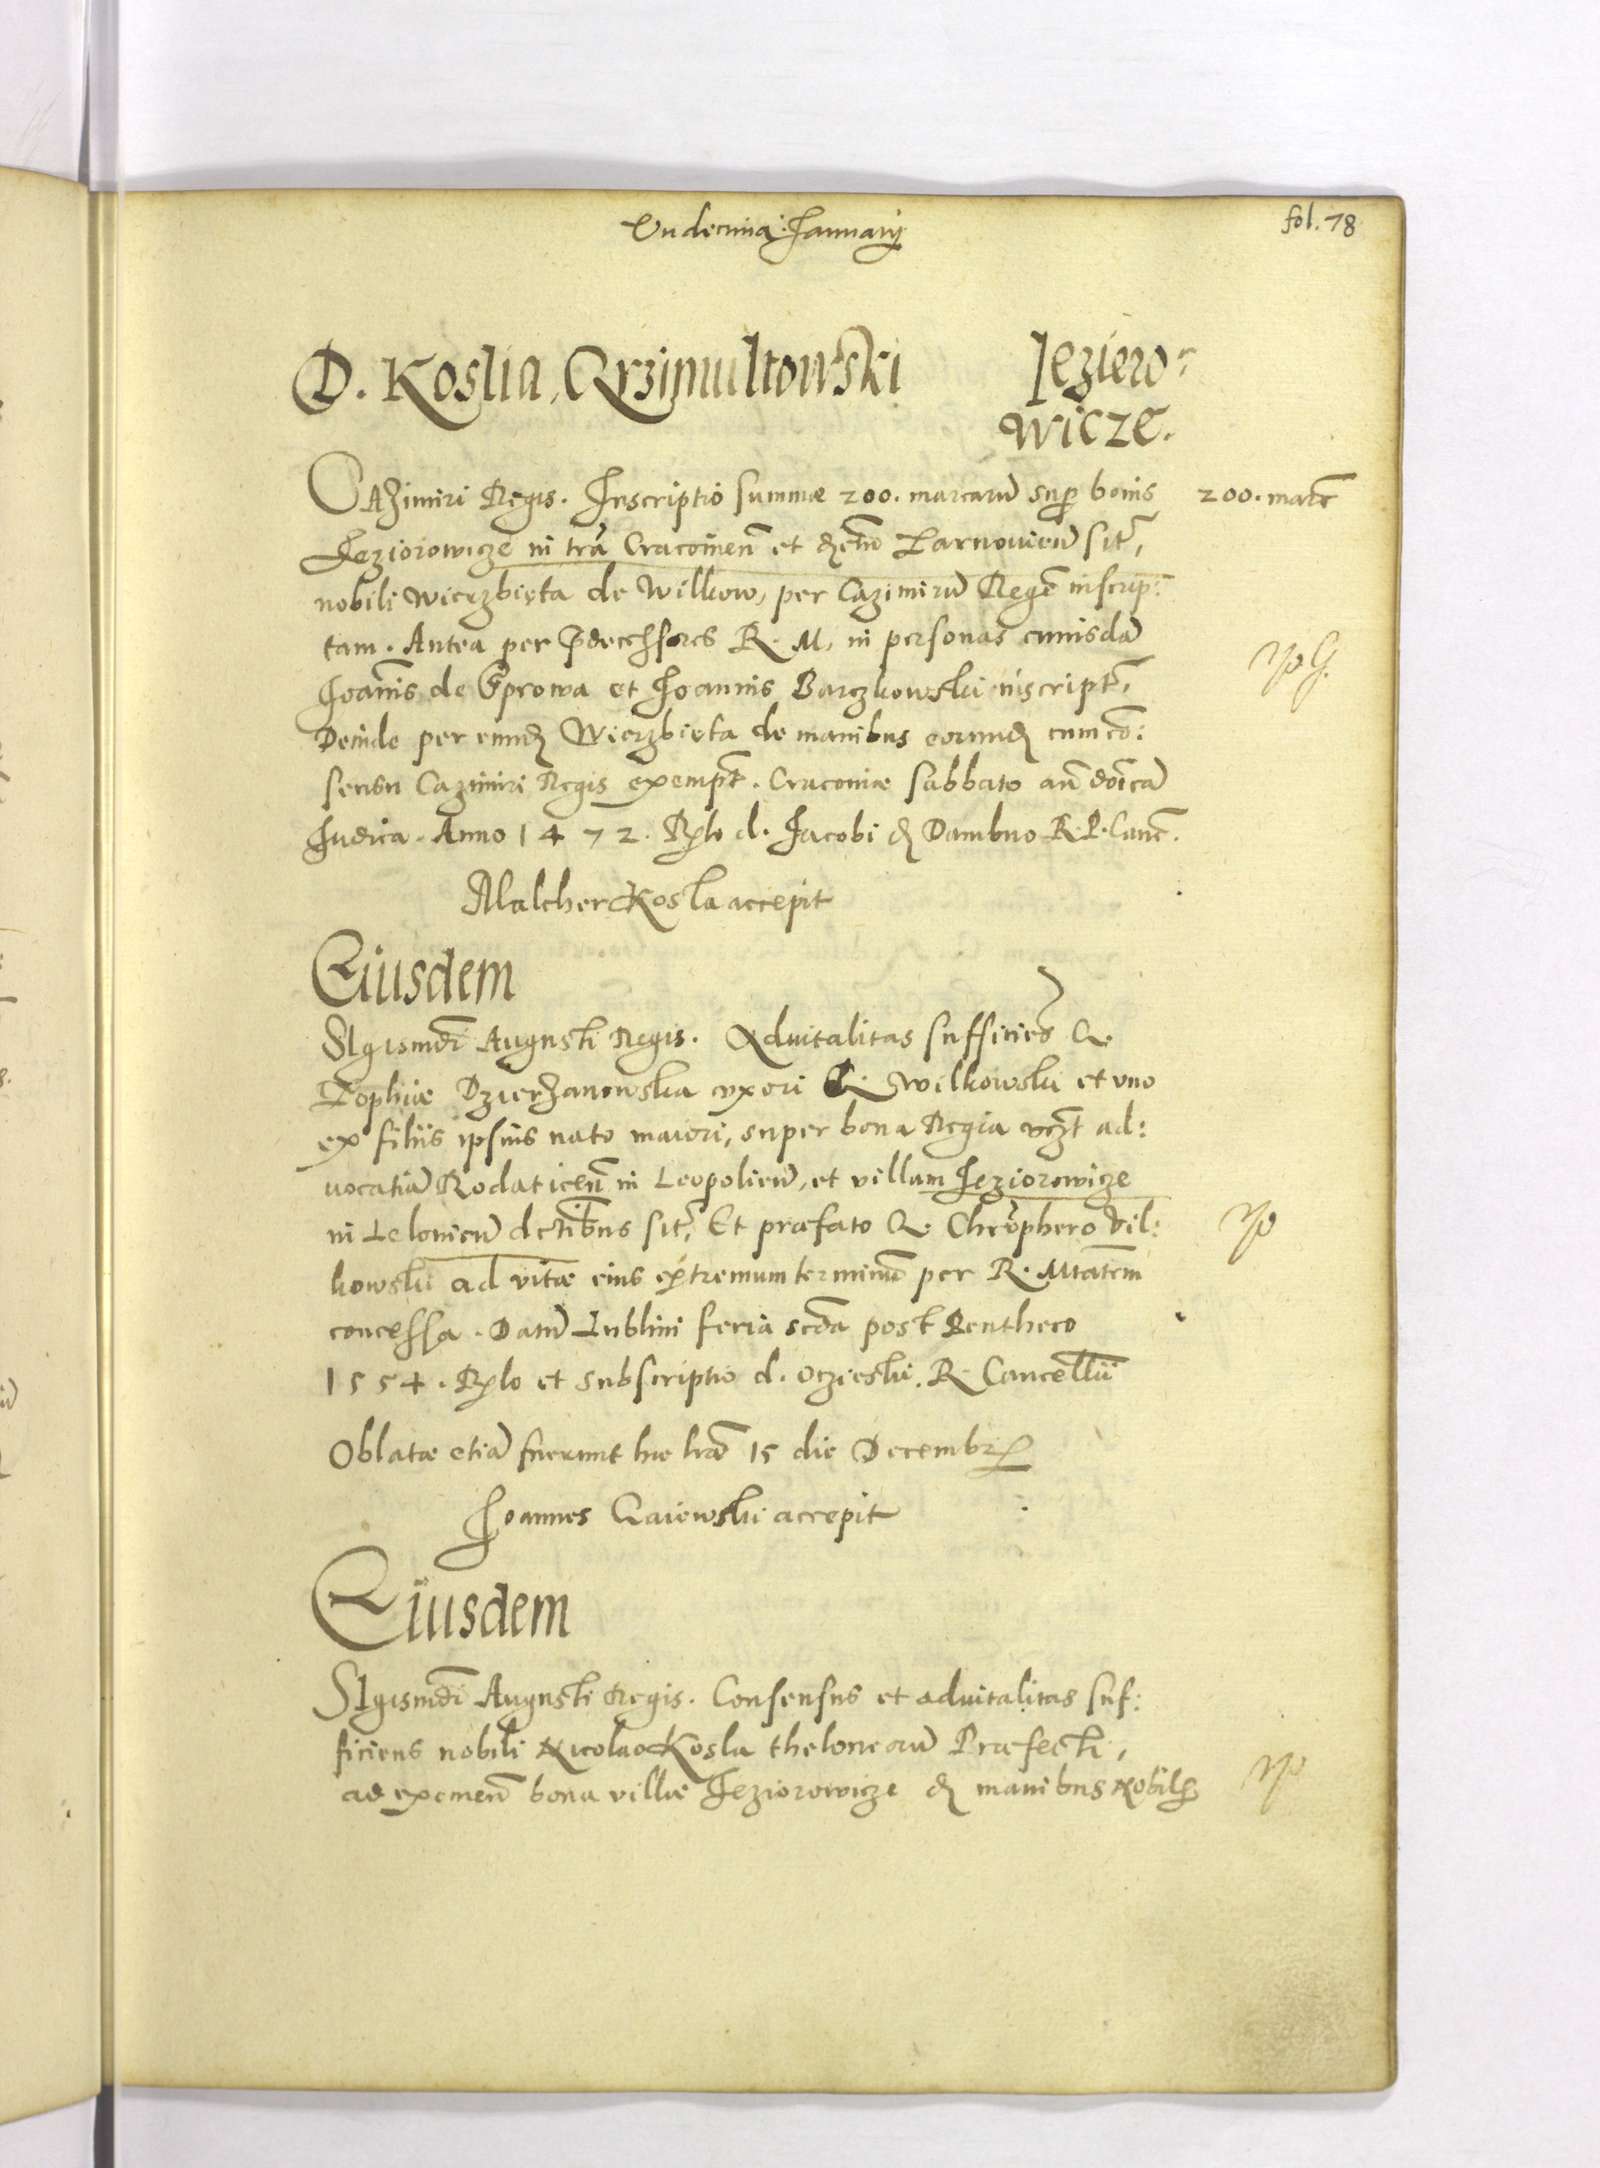 Vndecima Januarij
fol. 78
D. Koslia, Krzimultowski
Jeziero-
wicze.
CAzimiri Regis. Inscriptio summæ 200. marcarũ supr bonis
200. marc
Jeziorowicze in trã Cracouien̄ et Tarnouien̄ sit̄,
nobili Wierzbięta de Wilkow, per Cazimirũ Regē inscrip:
tam. Antea per p̄decessores R. M. in personas cuiusdã
Joañis de Oprowa et Joannis Barzkowski inscript̄,
Deinde per eund Wierzbięta de manibus eorund cum cõ:
sensu Cazimiri Regis exempt̄. Cracoviæ sabbato añ doĩcã
Judica. Anno 1472. Rlo d. Jacobi d Dambno R. P. Canc̄.
Malcher Kosla accepit
Eiusdem
SIgismũdi Augusti Regis. Aduitalitas sufficiēs G.
Zophiæ Dzierzanowska vxori G. Wilkowski et vno
ex filiis ipsius nato maiori, super bona Regia vczt ad:
uocatiã Rodaticeñ in Leopolien̄, et villam Jeziorowicze
in Lelouieñ dctibus sit̄, Et præfato G. Chrõphero Vil:
kowski ad vitæ eius extremum terminũ per R. Mtatem
concessa. Datũ Lublini feria scda post Pentheco
1554. Rlo et subscriptio d. Oczieski. R. Cancellii
Oblatæ etiã fuerunt hæ lræ 15 die Decembr
Joannes Gaiewski accepit
Eiusdem
SIgismũdi Augusti Regis. Consensus et aduitalitas suf:
ficiens nobili Nicolao Kosla theloneorũ Præfecti,
ad exemeñ bona villæ Jeziorowicze d manibus Nobil